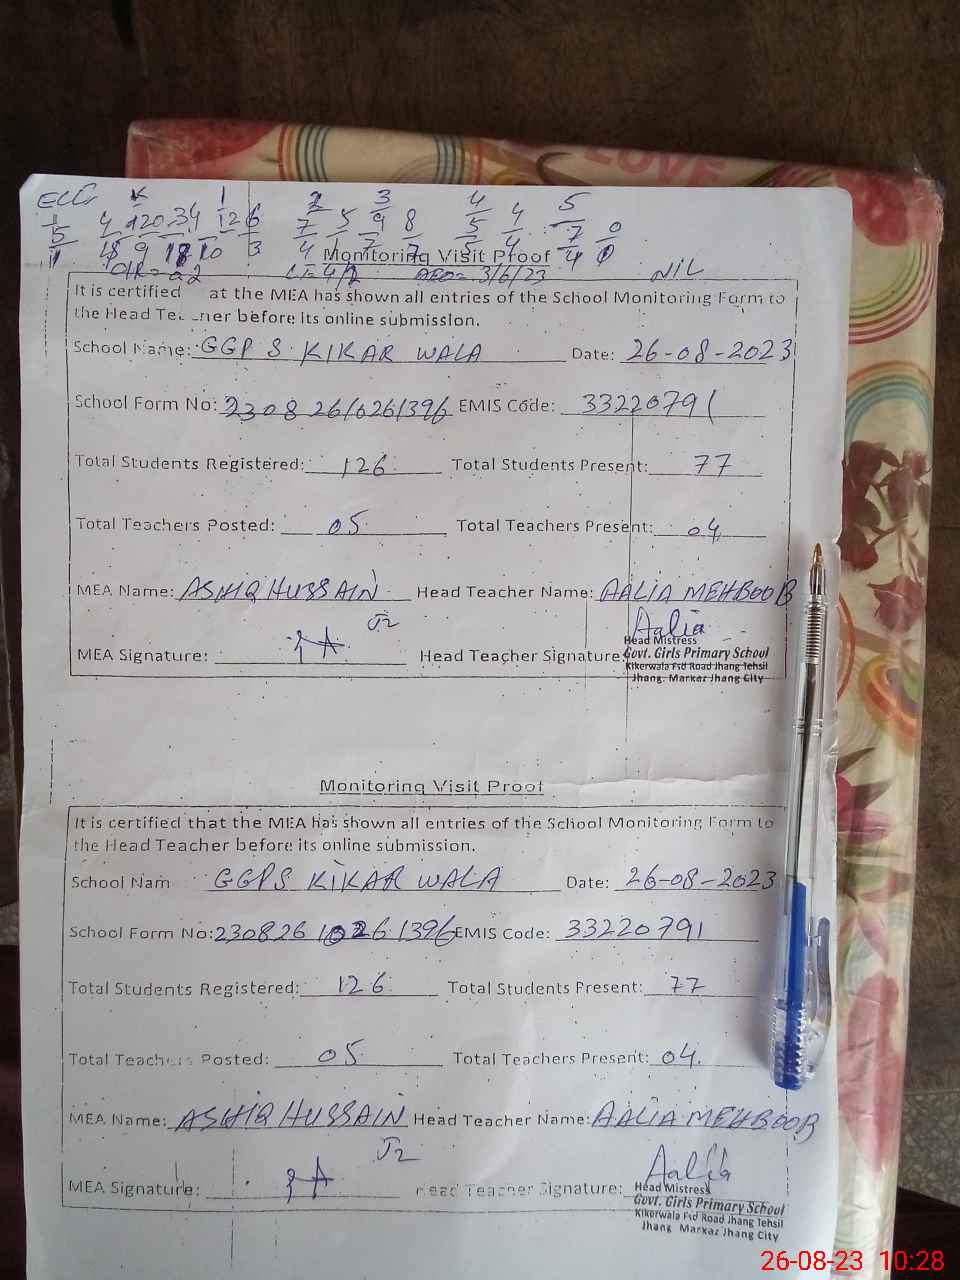 LOVE
ECE
Monitoring Visit Proof
3/6/23
NIL
It is certified at the MEA has shown all entries of the School Monitoring Form to
the Head Tea ner before its online submission.
School Name: GGPS KIKAR WALA Date: 26-08-2023
School Form No: 23082610261396 EMIS Code: 33220791
Total Students Registered: 126 Total Students Present: 77
Total Teachers Posted: 05 Total Teachers Present: 04
MEA Name: ASHIQ HUSSAIN Head Teacher Name: AALIA MEHBOOB
MEA Signature: Head Teacher Signature: Aalia
Head Mistress
Govt. Girls Primary School
Kikerwala Fsd Road Jhang Tehsil
Jhang. Markaz Jhang City
Monitoring Visit Proof
It is certified that the MEA has shown all entries of the School Monitoring Form to
the Head Teacher before its online submission.
School Nam GGPS KIKAR WALA Date: 26-08-2023
School Form No: 23082610261396 EMIS Code: 33220791
Total Students Registered: 126 Total Students Present: 77
Total Teachers Posted: 05 Total Teachers Present: 04.
MEA Name: ASHIQ HUSSAIN Head Teacher Name: AALIA MEHBOOB
MEA Signature: Head Teacher Signature: Aalia
Head Mistress
Govt. Girls Primary School
Kikerwala Fsd Road Jhang Tehsil
Jhang Markaz Jhang City
26-08-23 10:28